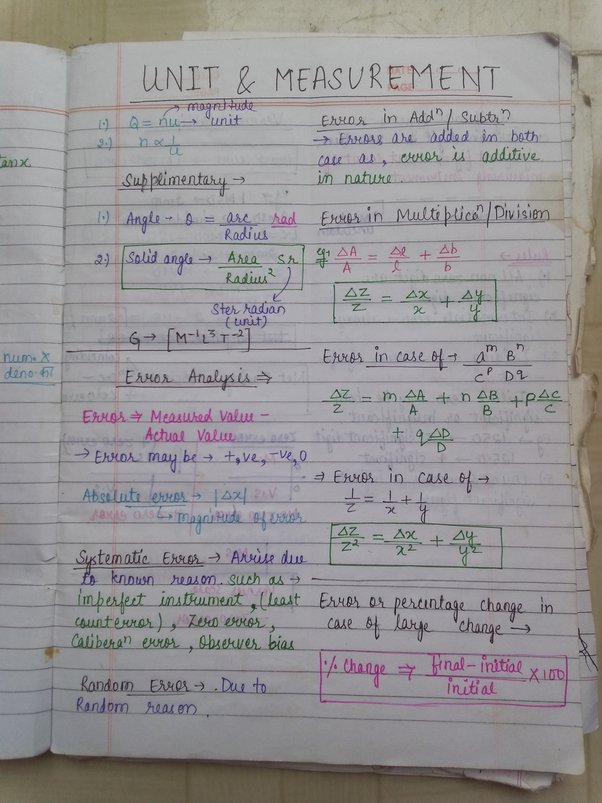 UNIT & MEASUREMENT
→ magnitude
1.) Q = nu → unit
2.) n ∝ 1/u
Supplimentary →
1.) Angle - θ = arc/Radius rad
2.) Solid angle → Area/Radius² Sr
Ster radian
(unit)
G → [M⁻¹L³T⁻²]
Error Analysis ⇒
Error → Measured Value -
Actual Value
→ Error may be → +ve, -ve, 0
Absolute error → |Δx|
↳ magnitude of error
Systematic Error → Arrise due
to known reason. such as →
imperfect instrument, (least
count error), Zero error,
Caliberaⁿ error, Observer bias
Random Error → Due to
Random reason.
Error in Addⁿ/Subtrⁿ
→ Errors are added in both
case as, error is additive
in nature.
Error in Multiplicaⁿ/Division
eg: ΔA/A = Δl/l + Δb/b
ΔZ/Z = Δx/x + Δy/y
Error in case of → aᵐ Bⁿ / Cᵖ Dq
ΔZ/Z = m ΔA/A + n ΔB/B + p ΔC/C
+ q ΔD/D
⇒ Error in case of →
1/Z = 1/x + 1/y
ΔZ/Z² = Δx/x² + Δy/y²
Error or percentage change in
case of large change →
% Change ⇒ final-initial/initial × 100
tan x
num. x